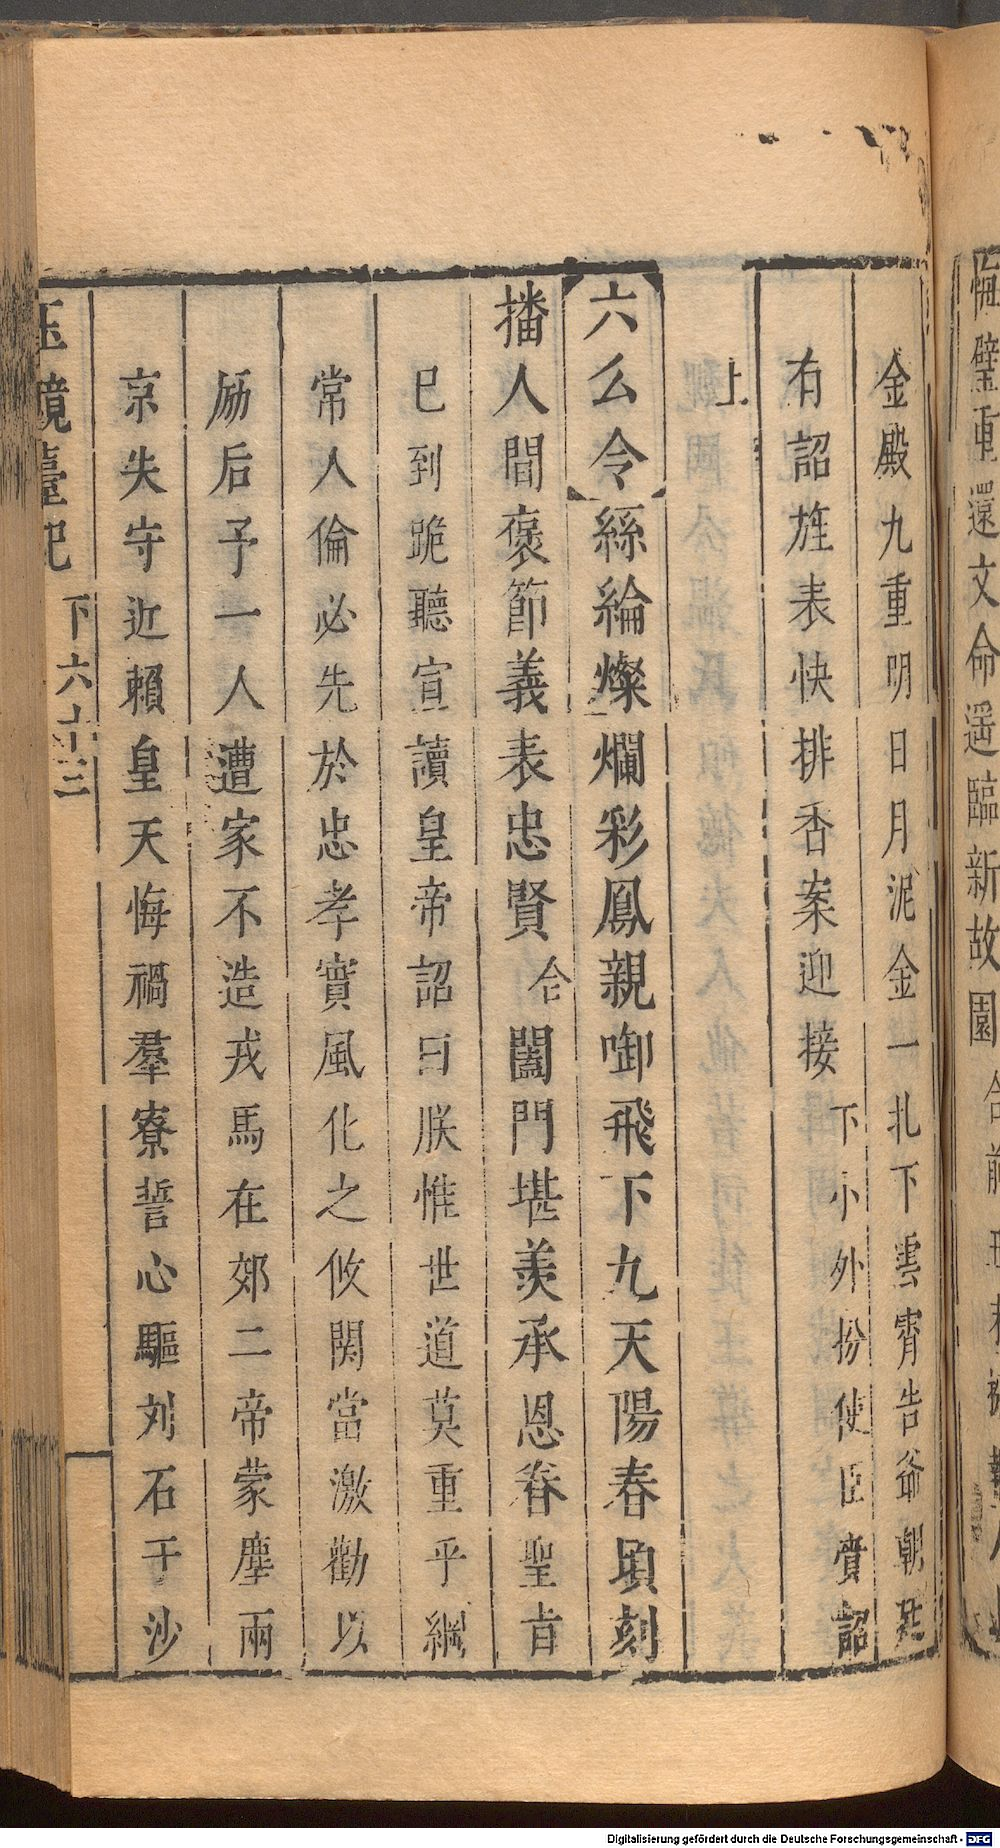 悔璧重還文命遥臨新故園合前
金殿九重明日月泥金一札下雲霄告爺朝廷
有詔旌表快排香案迎接下小外扮使臣賫詔
上
六么令絲綸燦爛彩鳳親啣飛下九天陽春頃刻
播人間褒節義表忠賢合闔門堪羨承恩眷聖旨
已到跪聽宣讀皇帝詔曰朕惟世道莫重乎綱
常人倫必先於忠孝實風化之攸関當激勸以
勵后予一人遭家不造戎馬在郊二帝蒙塵兩
京失守近賴皇天悔禍羣寮誓心驅刘石于沙
玉鏡臺記 下 六十三
Digitalisierung gefördert durch die Deutsche Forschungsgemeinschaft - DFG